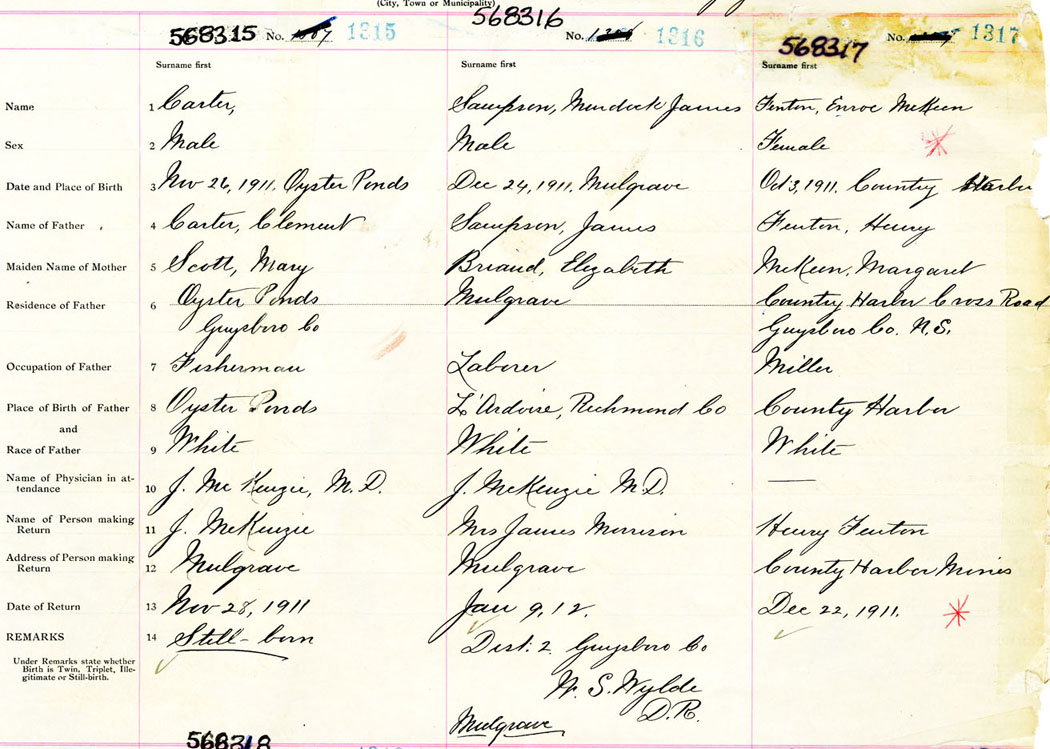 (City, Town or Municipality)
568315 No. 1315
568316 No. 1316
568317 No. 1317
Surname first Surname first Surname first
Name 1 Carter, Sampson, Murdock James Fenton, Enroe McKeen
Sex 2 Male Male Female
Date and Place of Birth 3 Nov 26, 1911. Oyster Ponds Dec 24, 1911, Mulgrave Oct 3, 1911. Country Harbor
Name of Father 4 Carter, Clement Sampson, James Fenton, Henry
Maiden Name of Mother 5 Scott, Mary Briand, Elizabeth McKeen, Margaret
Residence of Father 6 Oyster Ponds Mulgrave Country Harbor Cross Road
Guysboro Co Guysboro Co. N.S.
Occupation of Father 7 Fisherman Laborer Miller
Place of Birth of Father 8 Oyster Ponds L'Ardoise, Richmond Co County Harbor
and
Race of Father 9 White White White
Name of Physician in at-
tendance 10 J. McKenzie, M.D. J. McKenzie M.D. —
Name of Person making
Return 11 J. McKenzie Mrs James Morrison Henry Fenton
Address of Person making
Return 12 Mulgrave Mulgrave County Harbor Mines
Date of Return 13 Nov 28, 1911 Jan 9, 12. Dec 22, 1911.
REMARKS 14 Still-born Dist. 2 Guysboro Co
Under Remarks state whether
Birth is Twin, Triplet, Ille-
gitimate or Still-birth.
W. S. Wylde
Mulgrave D.R.
568318